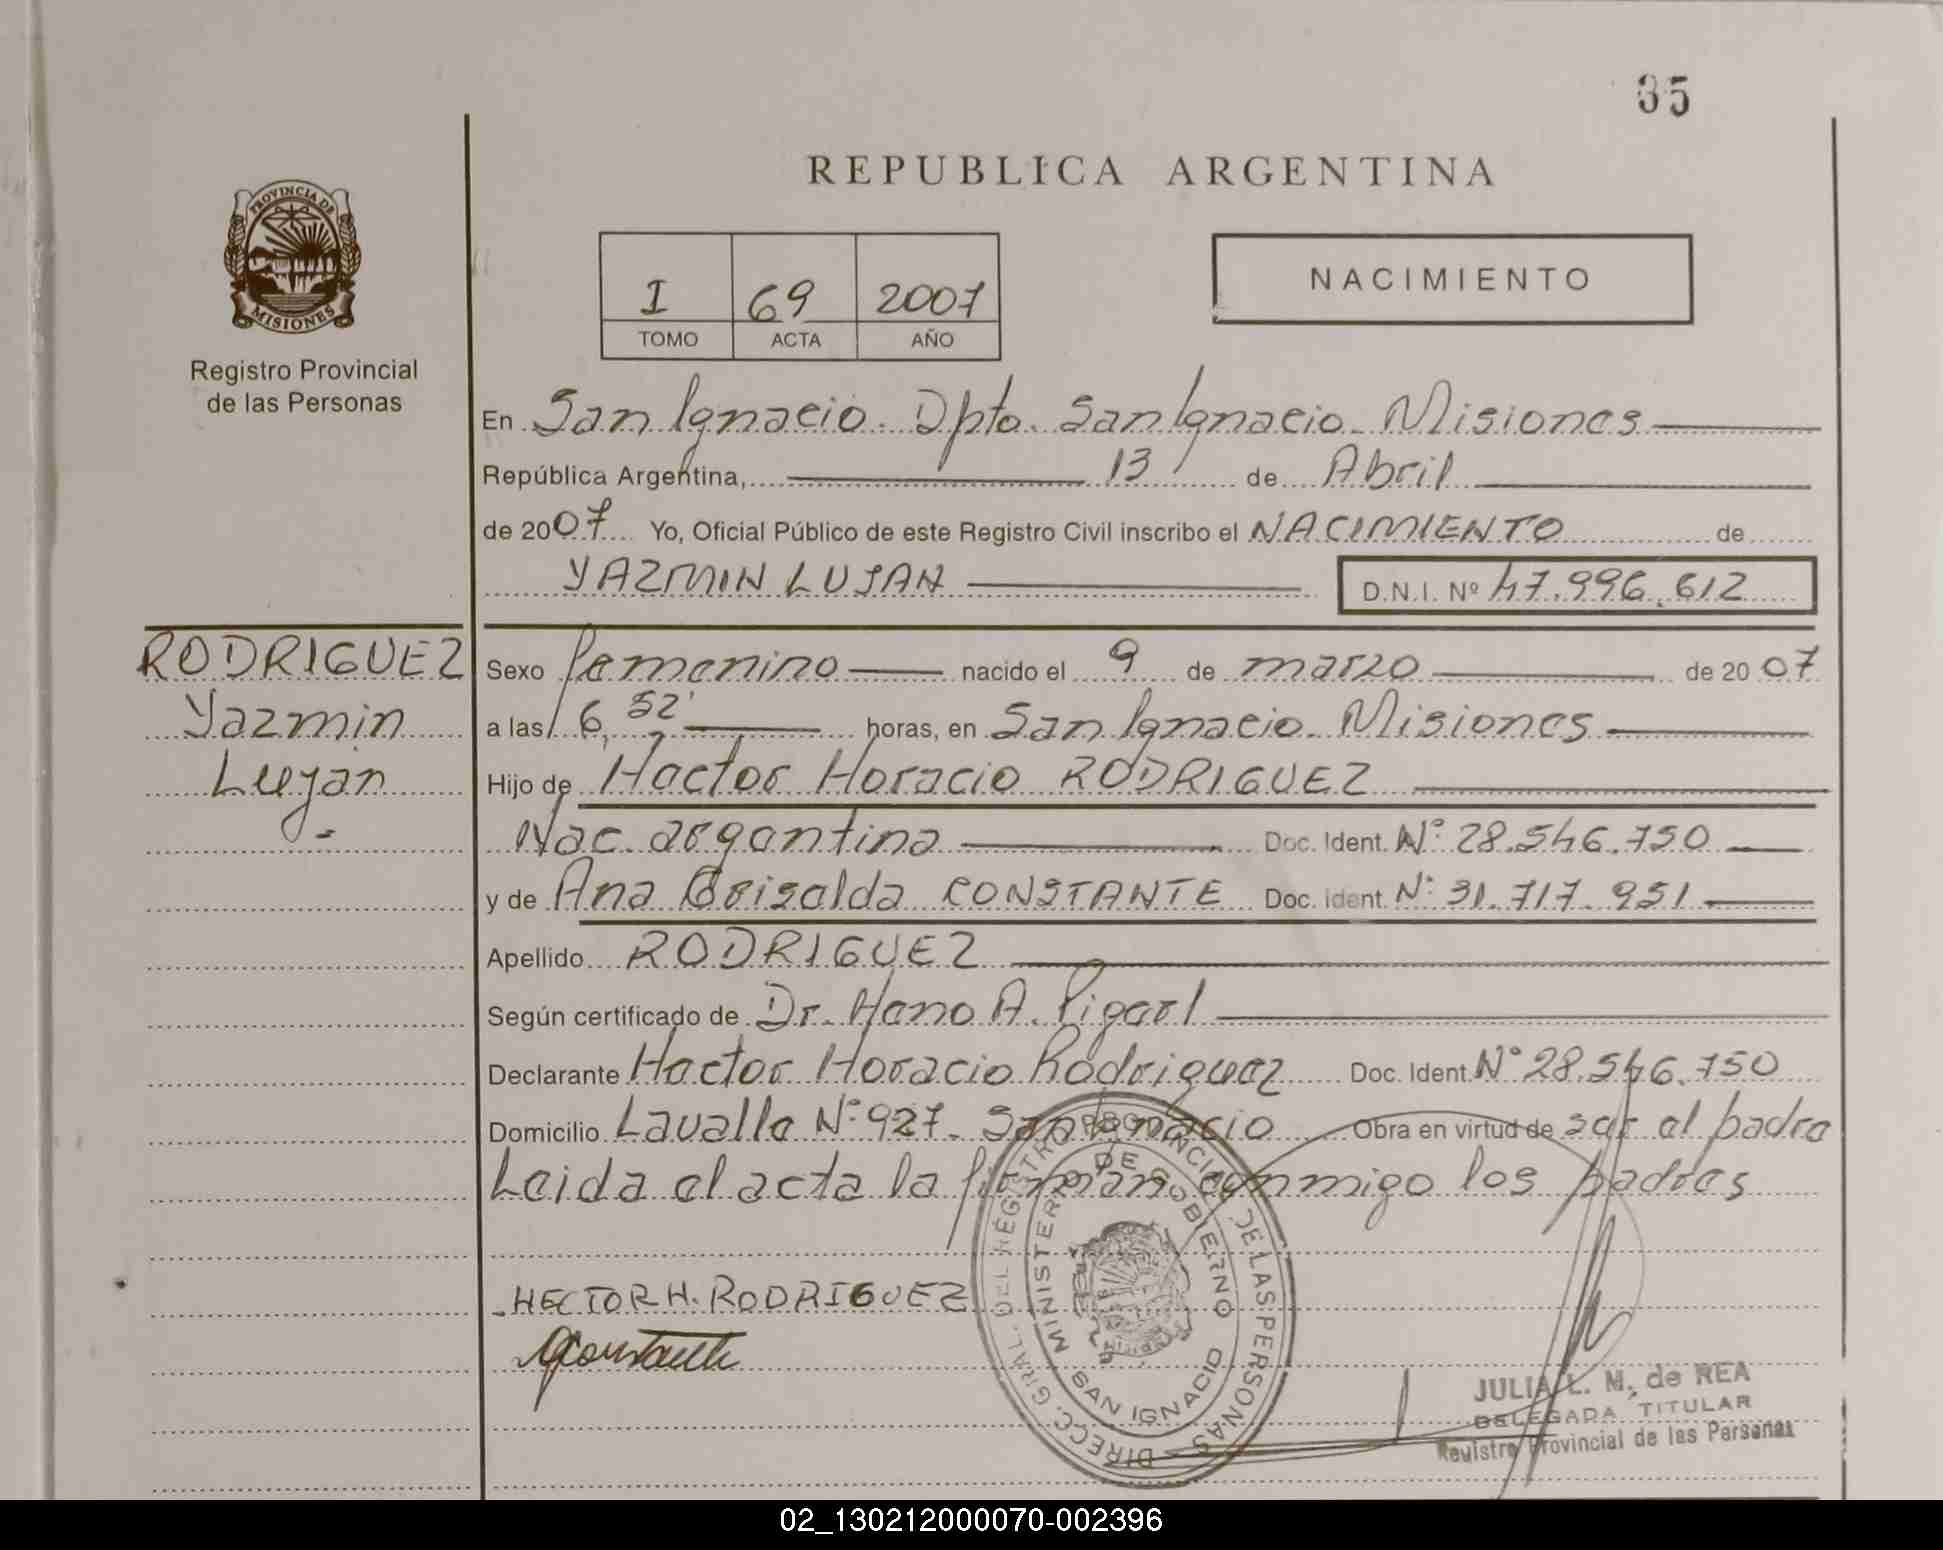 35
REPUBLICA ARGENTINA
PROVINCIA DE MISIONES
Registro Provincial
de las Personas
I 69 2007
TOMO ACTA AÑO
NACIMIENTO
En San Ignacio. Dpto. San Ignacio. Misiones
República Argentina, 13 de Abril
de 2007 Yo, Oficial Público de este Registro Civil inscribo el NACIMIENTO de
YAZMIN LUJAN D.N.I. Nº 47.996.612
RODRIGUEZ
Yazmin
Lujan
Sexo femenino nacido el 9 de marzo de 2007
a las 6,52' horas, en San Ignacio. Misiones
Hijo de Hector Horacio RODRIGUEZ
Nac. argentina Doc. Ident. Nº 28.546.750
y de Ana Griselda CONSTANTE Doc. Ident. Nº 31.717.951
Apellido RODRIGUEZ
Según certificado de Dr. A.
Declarante Hector Horacio Rodriguez Doc. Ident. Nº 28.546.750
Domicilio Lavalle Nº 927. San Ignacio Obra en virtud de ser el padre
Leida el acta la firman conmigo los padres
HECTOR H. RODRIGUEZ
Constante
DIRECC. GRAL. DEL REGISTRO PROVINCIAL DE LAS PERSONAS
MINISTERIO DE GOBIERNO
SAN IGNACIO
JULIA L. M. de REA
DELEGADA TITULAR
Registro Provincial de las Personas
02_130212000070-002396